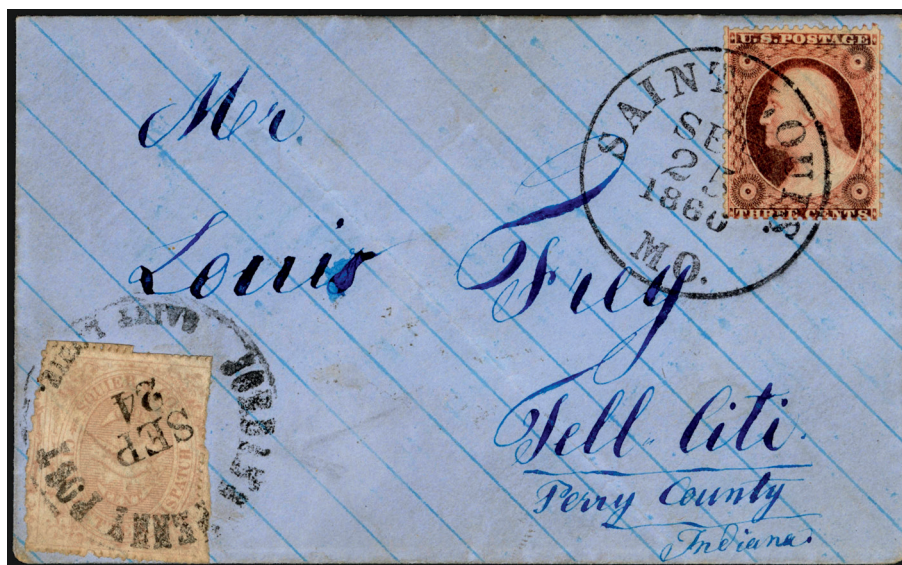 U.S. POSTAGE
THREE CENTS
SAINT LOUIS
SE
25
1860
MO.
Mr
Louis Frey
Tell Citi.
Perry County
Indiana.
SEP
24
PENNY POST